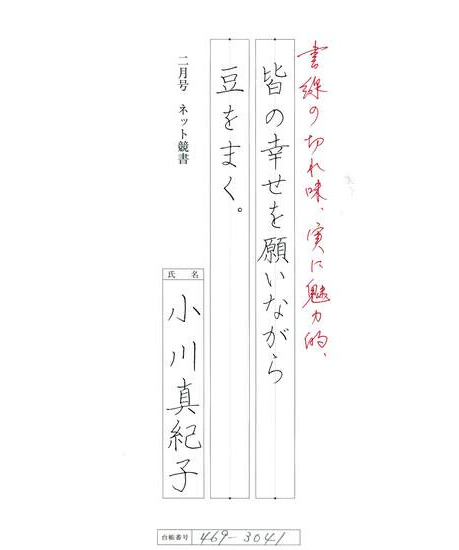 書線の切れ味、実に魅力的、
皆の幸せを願いながら
豆をまく。
二月号 ネット競書
氏名
小川真紀子
台帳番号 469-3041